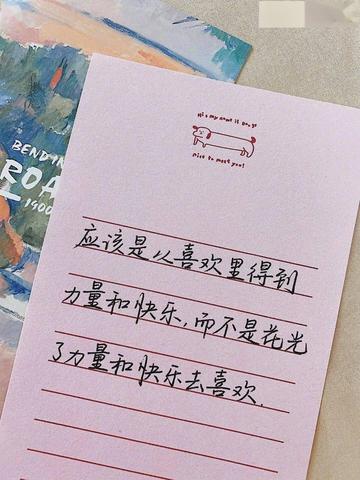 Hi~ my name is Dong
nice to meet you!
BENDIN
ROA
1900
应该是从喜欢里得到
力量和快乐,而不是花光
了力量和快乐去喜欢.